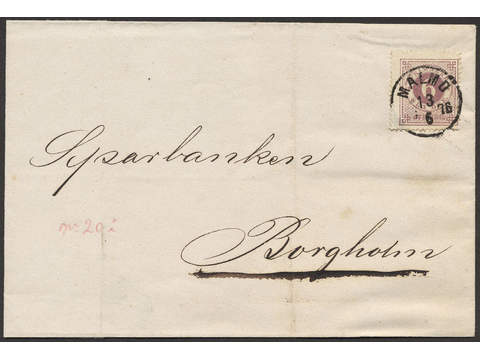 MALMÖ
13
6
76
6
Sparbanken
Borgholm